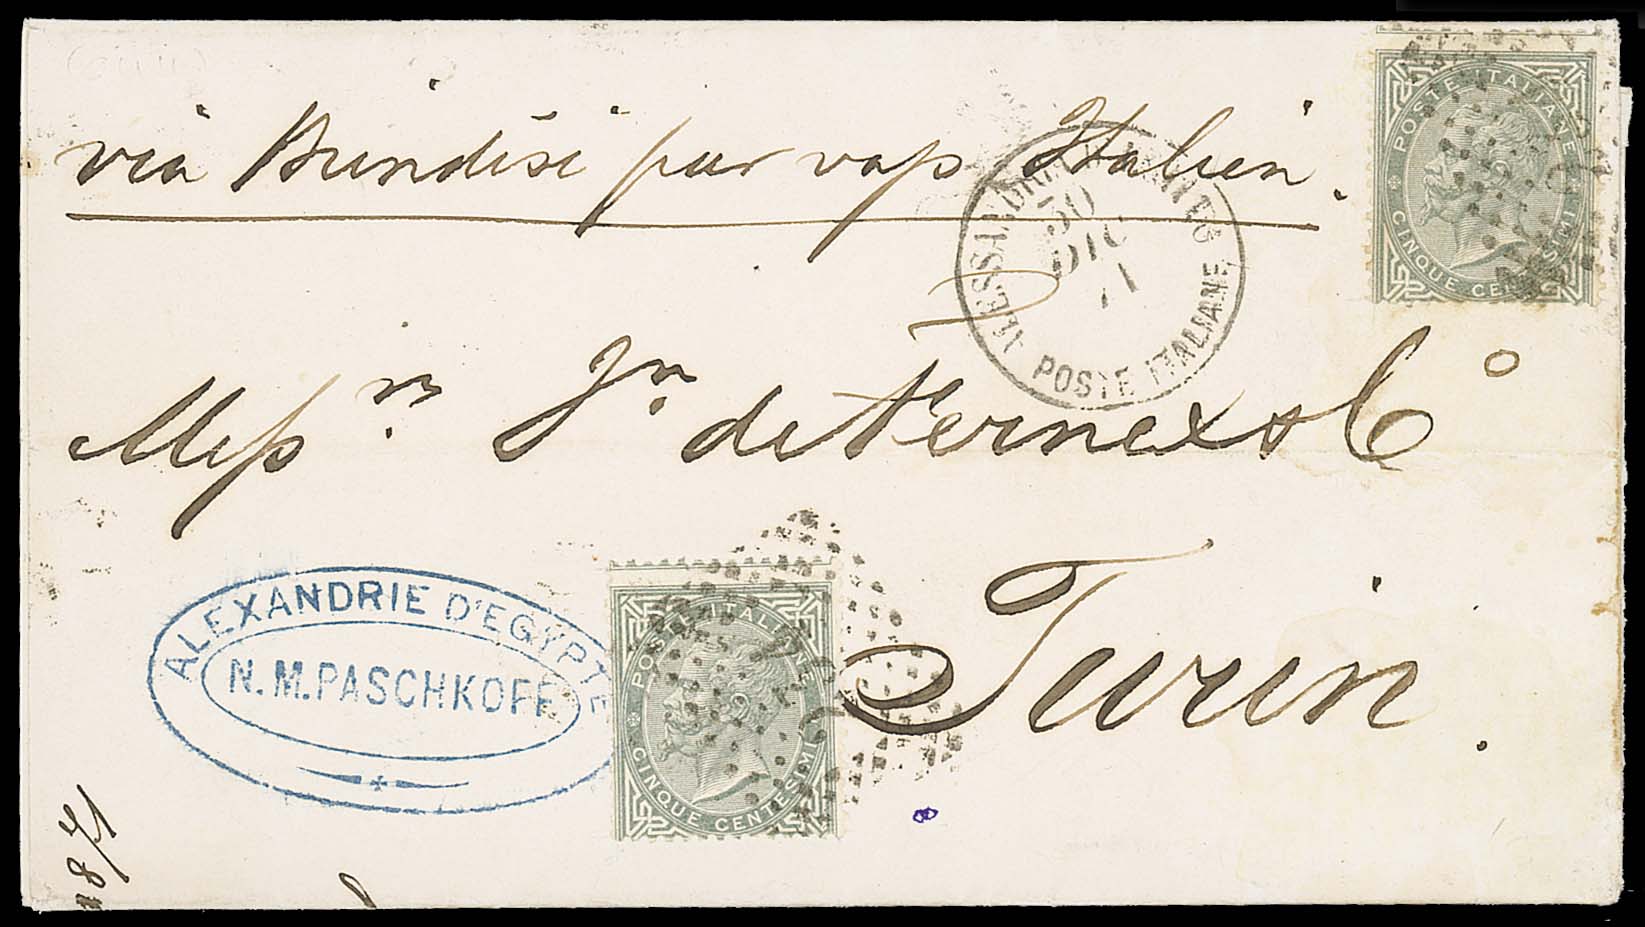 via Brindisi par vap Italien.
POSTE ITALIANE
CINQUE CENTESIMI
ALESSANDRIA D'EGITTO
30
DIC
71
POSTE ITALIANE
Mess.rs J.n de Fernex & C.o
Turin.
ALEXANDRIE D'EGYPTE
N. M. PASCHKOFF
POSTE ITALIANE
CINQUE CENTESIMI